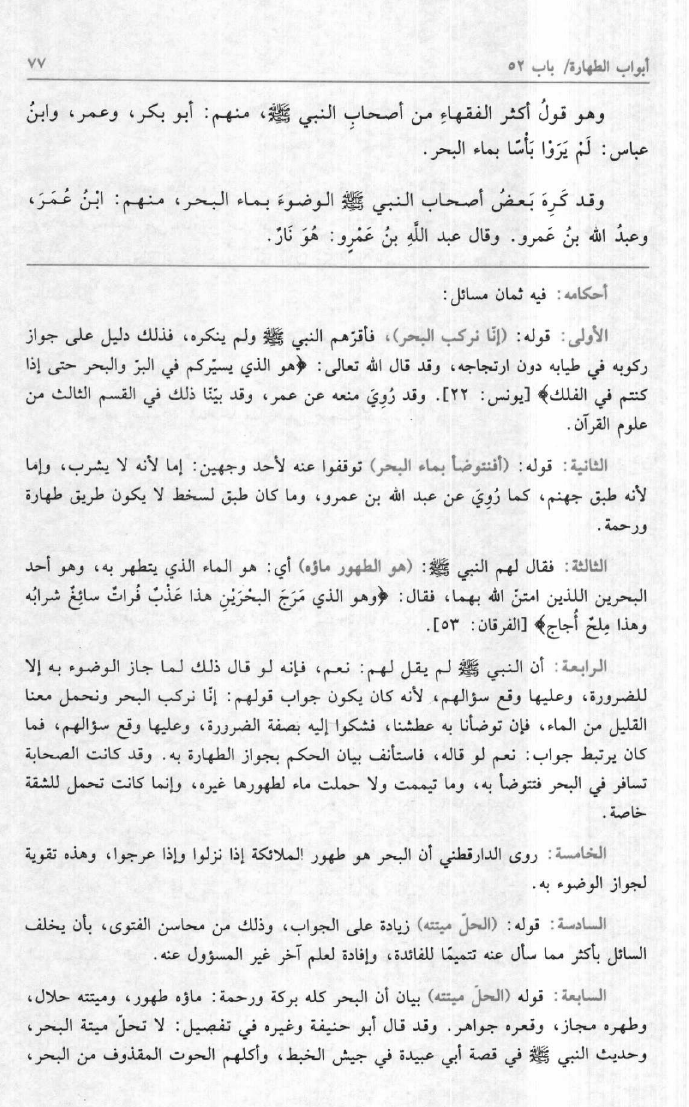 أبواب الطهارة/ باب ٥٢ ٧٧
وهو قولُ أكثر الفقهاءِ من أصحابِ النبي ﷺ، منهم: أبو بكر، وعمر، وابنُ
عباس: لَمْ يَرَوْا بَأْسًا بماء البحر.
وقد كَرِهَ بَعضُ أصحاب النبي ﷺ الوضوءَ بماء البحر، منهم: ابْنُ عُمَرَ،
وعبدُ الله بنُ عَمرو. وقال عبد اللَّهِ بنُ عَمْرٍو: هُوَ نَارٌ.
أحكامه: فيه ثمان مسائل:
الأولى: قوله: (إنّا نركب البحر)، فأقرّهم النبي ﷺ ولم ينكره، فذلك دليل على جواز
ركوبه في طيابه دون ارتجاجه، وقد قال الله تعالى: ﴿هو الذي يسيّركم في البرّ والبحر حتى إذا
كنتم في الفلك﴾ [يونس: ٢٢]. وقد رُوِيَ منعه عن عمر، وقد بيّنّا ذلك في القسم الثالث من
علوم القرآن.
الثانية: قوله: (أفنتوضأ بماء البحر) توقفوا عنه لأحد وجهين: إما لأنه لا يشرب، وإما
لأنه طبق جهنم، كما رُوِيَ عن عبد الله بن عمرو، وما كان طبق لسخط لا يكون طريق طهارة
ورحمة.
الثالثة: فقال لهم النبي ﷺ: (هو الطهور ماؤه) أي: هو الماء الذي يتطهر به، وهو أحد
البحرين اللذين امتنّ الله بهما، فقال: ﴿وهو الذي مَرَجَ البحْرَيْنِ هذا عَذْبٌ فُراتٌ سائِغٌ شرابُه
وهذا مِلحٌ أُجاج﴾ [الفرقان: ٥٣].
الرابعة: أن النبي ﷺ لم يقل لهم: نعم، فإنه لو قال ذلك لما جاز الوضوء به إلا
للضرورة، وعليها وقع سؤالهم، لأنه كان يكون جواب قولهم: إنّا نركب البحر ونحمل معنا
القليل من الماء، فإن توضأنا به عطشنا، فشكوا إليه بصفة الضرورة، وعليها وقع سؤالهم، فما
كان يرتبط جواب: نعم لو قاله، فاستأنف بيان الحكم بجواز الطهارة به. وقد كانت الصحابة
تسافر في البحر فتتوضأ به، وما تيممت ولا حملت ماء لطهورها غيره، وإنما كانت تحمل للشقة
خاصة.
الخامسة: روى الدارقطني أن البحر هو طهور الملائكة إذا نزلوا وإذا عرجوا، وهذه تقوية
لجواز الوضوء به.
السادسة: قوله: (الحلّ ميتته) زيادة على الجواب، وذلك من محاسن الفتوى، بأن يخلف
السائل بأكثر مما سأل عنه تتميمًا للفائدة، وإفادة لعلم آخر غير المسؤول عنه.
السابعة: قوله (الحلّ ميتته) بيان أن البحر كله بركة ورحمة: ماؤه طهور، وميتته حلال،
وطهره مجاز، وقعره جواهر. وقد قال أبو حنيفة وغيره في تفصيل: لا تحلّ ميتة البحر،
وحديث النبي ﷺ في قصة أبي عبيدة في جيش الخبط، وأكلهم الحوت المقذوف من البحر،